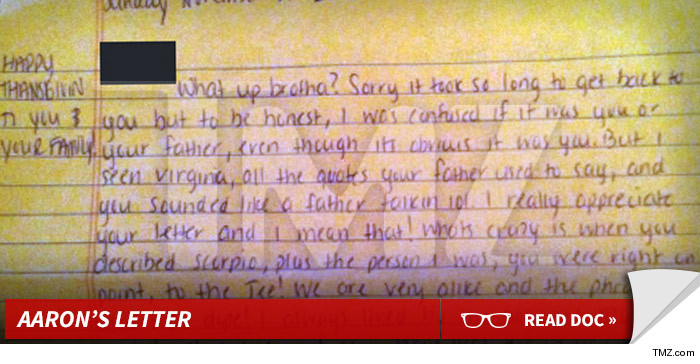 HAPPY
THANSGIVIN
TO YOU &
YOUR FAMILY!
What up brotha? Sorry it took so long to get back to
you but to be honest, I was confused if it was you or
your father, even though its obvious it was you. But I
seen virgina, all the quotes your father used to say, and
you sounded like a father talkin lol I really appreciate
your letter and I mean that! Whats crazy is when you
described scorpio, plus the person I was, you were right on
point, to the Tee! We are very alike and the
TMZ
AARON'S LETTER
READ DOC »
TMZ.com